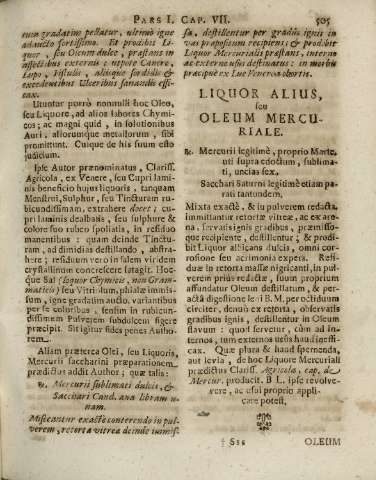 PARS I. CAP. VII. 505
cum gradatim pellatur, ultimò igne
adaucto fortissimo. Et prodibit Li-
quor, seu Oleum dulce, præstans in
affectibus externis: utpote Cancro,
Lupo, Fistulis, aliisque sordidis &
excedentibus Ulceribus sanandis effi-
cax.
Utuntur porrò nonnulli hoc Oleo,
seu Liquore, ad alios labores Chymi-
cos; ac magni quid, in solutionibus
Auri, aliorumque metallorum, sibi
promittunt. Cuique de his suum esto
judicium.
Ipse Autor prænominatus, Clariss.
Agricola, ex Venere, seu Cupri lami-
nis beneficio hujus liquoris, tanquam
Menstrui, Sulphur, seu Tincturam ru-
bicundissimam, extrahere docet; cu-
pri laminis dealbatis, seu sulphure &
colore suo rubeo spoliatis, in residuo
manentibus: quam deinde Tinctu-
ram, ad dimidias destillando, abstra-
here; residuum vero in salem viridem
crystallinum concrescere satagit. Hoc-
que Sal (loquor Chymicis, non Gram-
maticis) seu Vitriolum, phialæ immis-
sum, igne gradatim aucto, variantibus
per se coloribus, tensim in rubicun-
dissimum Pulverem subdulcem figere
præcipit. Sit igitur fides penes Autho-
rem.
Aliam præterea Olei, seu Liquoris,
Mercurii saccharini præparationem
prædictus addit Author; quæ talis:
℞. Mercurii sublimati dulcis, &
Sacchari Cand. ana libram u-
nam.
Misceantur exacte conterendo in pul-
verem, retortæ vitreæ deinde immis-
sa, destillentur per gradûs ignis in
vas prapositum recipiens; & prodibit
Liquor Mercurialis præstans, interno
ac externo usui destinatus: in morbis
præcipuè ex Lue Venerea obortis.
LIQUOR ALIUS,
seu
OLEUM MERCU-
RIALE.
℞. Mercurii legitimè, proprio Marte,
uti supra edoctum, sublima-
ti, uncias sex.
Sacchari Saturni legitimè etiam pa-
rati tantundem.
Mixta exactè, & in pulverem redacta,
immittantur retortæ vitreæ, ac ex are-
na, servatis ignis gradibus, præmisso-
que recipiente, destillentur; & prodi-
bit Liquor albicans dulcis, omni cor-
rosione seu acrimonia expers. Resi-
duæ in retorta massæ nigricanti, in pul-
verem priùs redactæ, suum proprium
affundatur Oleum destillatum, & per-
actâ digestione leni B. M. per octiduum
circiter, denuò ex retorta, observatis
gradibus ignis, destillentur in Oleum
flavum: quod servetur, cùm ad in-
ternos, tum externos usus haud ineffi-
cax. Que plura & haud spernenda,
aut levia, de hoc Liquore Mercuriali
prædictus Clariss. Agricola, cap. de
Mercur. producit. B. L. ipse revolve-
vere, ac usui proprio appli-
care potest.
† Sss OLEUM